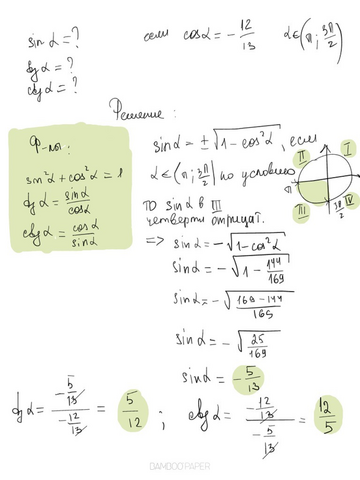 sin α = ?   если cos α = -12/13   α ∈ (π; 3π/2)
tg α = ?
ctg α = ?
Решение:
Ф-лы:
sin²α + cos²α = 1
tg α = sin α / cos α
ctg α = cos α / sin α
sin α = ± √(1 - cos²α), если
α ∈ (π; 3π/2) по условию
II I
π
III IV
3π/2
то sin α в III
четверти отрицат.
=> sin α = -√(1 - cos²α)
sin α = -√(1 - 144/169)
sin α = -√((169 - 144)/169)
sin α = -√(25/169)
sin α = -5/13
tg α = (-5/13)/(-12/13) = 5/12 ; ctg α = (-12/13)/(-5/13) = 12/5
BAMBOO PAPER